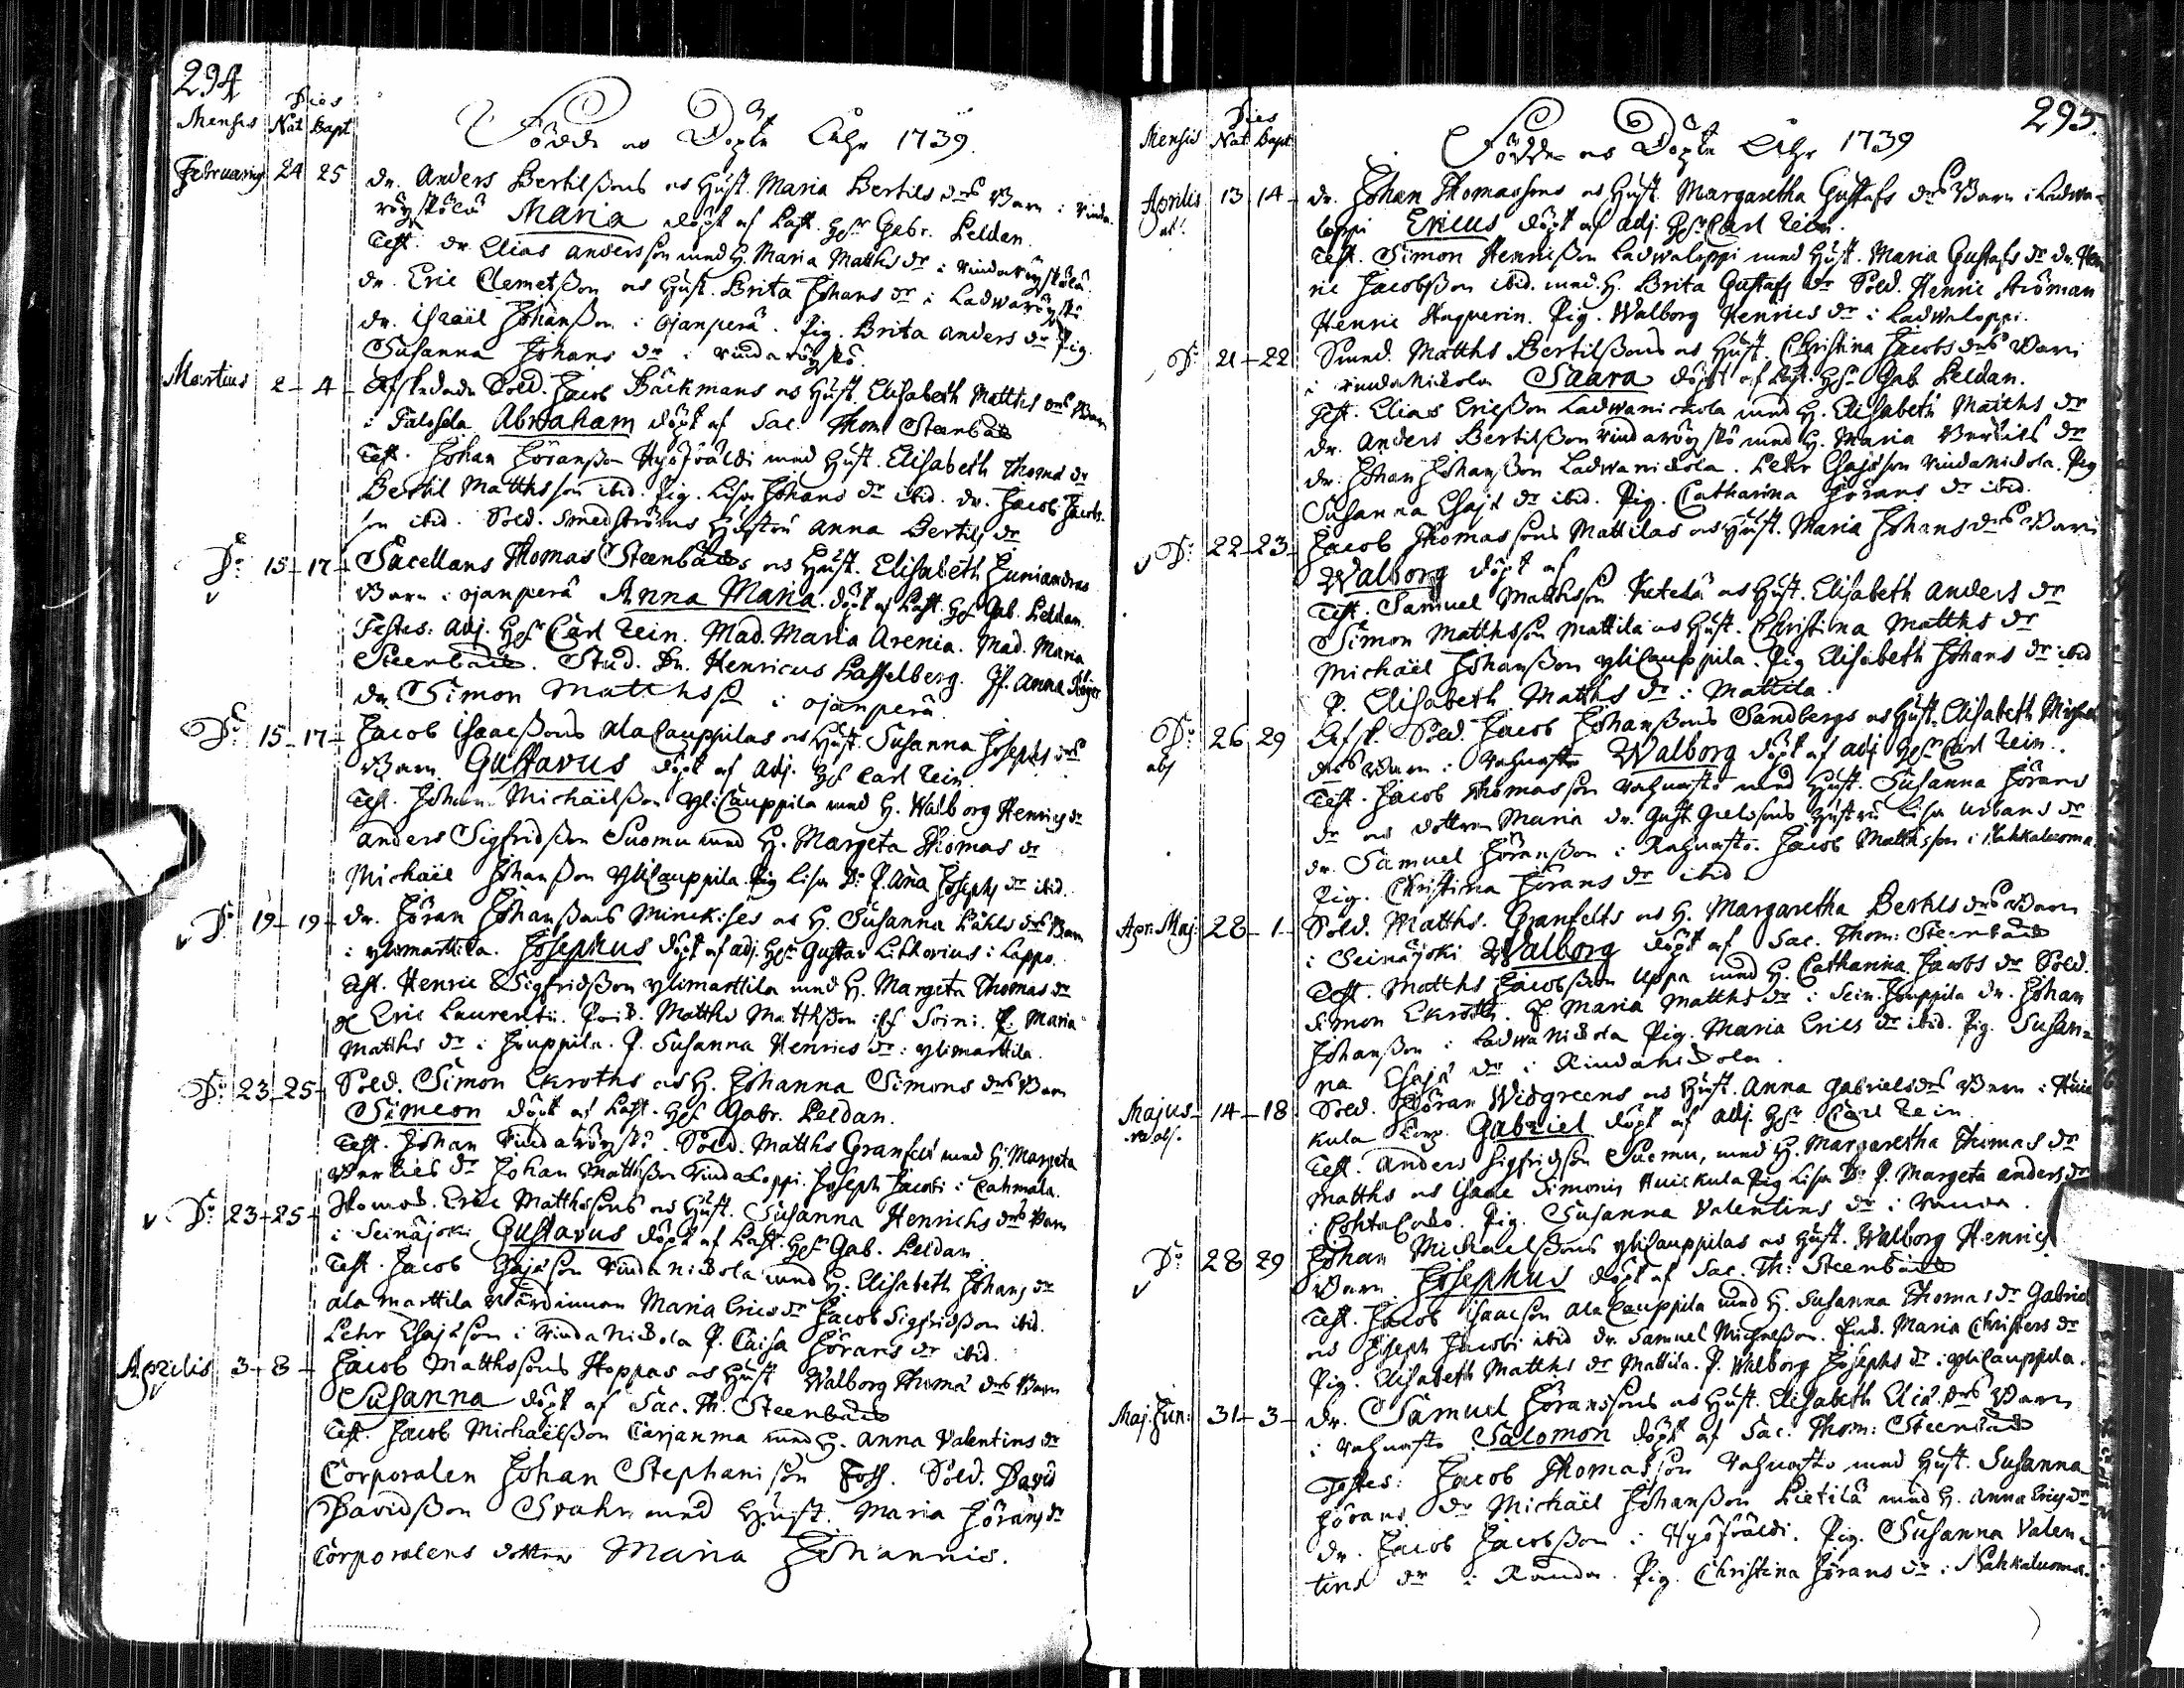 294
Dies
Mensis Nat Bapt
Födde os Döpte Åhr 1739.
Februarius 24 25 dr. Anders Bertilßons os Hust. Maria Bertils drs Barn i Rinda-
röyskölä Maria döpt af Past. Hr Gabr. Peldan.
Test. dr. Elias andersson med H. Maria Matths dr i Rindaröyskölä
dr. Eric Clemetßon os Hust. Brita Johans dr i Ladwaröyskö
dr. Israil Johanßon i ojanperä. Pig. Brita anders dr Pig.
Susanna Johans dr i Rindaröyskö.
Martius 2 - 4 - Afskedade Sold. Jacob Bäckmans os Hust. Elisabeth Matths drs Barn
i Abraham döpt af Sac. Thom Steenbäck
Test. Johan Jöranßon Hyöfwäldi med Hust. Elisabeth Thoma dr
Bertil Matthsson ibid. Pig. Lisa Johans dr ibid. dr. Jacob Jacobs-
son ibid. Sold. Smedströms Hustru Anna Bertils dr
Do 15 - 17 - Sacellans Thomas Steenbäcks os Hust. Elisabeth
Barn i ojanperä Anna Maria döpt af Past. Hr Gab. Peldan.
Testes: adj. Hr Carl Rein. Mad. Maria Arenia. Mad. Maria
Steenbäck. Stud. Dn. Henricus Hasselberg. Jf. Anna
dr Simon Matthsß i ojanperä.
Do 15 - 17 - Jacob Isaacßons alaCauppilas os Hust. Susanna Josephs drs
Barn Gustavus döpt af adj. Hr Carl Rein.
Test. Johan Michäilßon yliCauppila med H. Walborg Henrics dr
Anders Sigfridßon Suomu med H. Margeta Thomas dr
Michäil Johanßon yliCauppila. Pig Lisa Do P. Aña Josephs dr ibid.
Do 19 - 19 - dr. Jöran Johanßons os H. Susanna Påhls drs Barn
i ylimarttila. Josephus döpt af adj. Hr Gustav Lithovius i Lappo.
Test. Henric Sigfridßon ylimarttila med H. Margeta Thomas dr
Eric Laurentii. Matths Matthßon P. Maria
Matths dr i Jouppila. P. Susanna Henrics dr i ylimarttila.
Do 23 - 25 - Sold. Simon Ekroths os H. Johanna Simons drs Barn
Simeon döpt af Past. Hr Gabr. Peldan.
Test. Johan Rindaröyskö. Sold. Matths Granfelt med H. Margeta
Bertils dr Johan Matthßon Rindaloppi. Joseph Jacobi i Cahmala.
Do 23 - 25 - Eric Matthssons os Hust. Susanna Henrichs drs Barn
i Seinäjoki Gustavus döpt af Past. Hr Gab. Peldan.
Test. Jacob Esajæson RindaNickola med H. Elisabeth Johans dr
ala marttila Värdinnan Maria Erics dr Jacob Sigfridßon ibid.
Pehr Esajæson i RindaNickola P. Caisa Jörans dr ibid.
Aprilis 3 - 8 - Jacob Matthssons Hoppas os Hust Walborg Thomæ drs Barn
Susanna döpt af Sac. Th. Steenbäck
Test. Jacob Michäilßon Carjanma med H. Anna Valentins dr
Corporalen Johan Stephani son Foss. Sold. David
Davidßon Svahn med Hust. Maria Jörans dr
Corporalens dotter Maria Johannis.
295.
Dies
Mensis Nat Bapt
Födde os Döpte Åhr 1739
Aprilis 13 - 14 - dr. Johan Thomassons os Hust. Margaretha Gustafs drs Barn i Ladwa-
loppi Ericus döpt af adj. Hr Carl Rein.
Test. Simon Henricßon Ladwaloppi med Hust. Maria Gustafs dr dr. Hen
ric Jacobßon ibid. med H. Brita Gustafs dr Sold. Henric Ströman
Henric Pig. Walborg Henrics dr i Ladwaloppi.
Do 21 - 22 Matths Bertilßons os Hust. Christina Jacobs drs Barn
i RindaNickola Saara döpt af Past. Hr Gab Peldan.
Test. Elias Ericßon Ladwanickola med H. Elisabeth Matths dr
dr. Anders Bertilßon Rindaröyskö med H. Maria Bertils dr
dr. Johan Johanßon Ladwanickola. Pehr Esajæson RindaNickola. Pig
Susanna Esajæ dr ibid. Pig. Catharina Jörans dr ibid.
Do 22 - 23 - Jacob Thomassons Mattilas os Hust. Maria Johans drs Barn
Walborg döpt af
Test. Samuel Matthsson Ketelä os Hust. Elisabeth Anders dr
Simon Matthsson Mattila os Hust. Christina Matths dr
Michäil Johanßon yliCauppila. Pig Elisabeth Johans dr ibid
P. Elisabeth Matths dr i Mattila.
Do 26 29 Afsk. Sold. Jacob Johanßons Sandbergs os Hust. Elisabeth
drs Barn i Walborg döpt af adj Hr Carl Rein.
Test. Jacob Thomasson med Hust. Susanna Jörans
dr os dottren Maria dr. Gust. hustru Lisa Urbans dr
dr. Samuel Jöranßon i Jacob Matthsson i Nahkaluoma
Pig. Christina Jörans dr ibid
Apr. Maj: 28 - 1 - Sold. Matths. Granfelts os H. Margaretha Bertils drs Barn
i Seinäjoki Walborg döpt af Sac. Thom: Steenbäck
Test. Matths Jacobßon Uppa med H. Catharina Jacobs dr Sold.
Simon Ekroth. P. Maria Matths dr i Sein. Jouppila dr. Johan
Johanßon i LadwaNickola Pig. Maria Erics dr ibid. Pig. Susan-
na Esajæ dr i Rindanickola.
Majus - 14 - 18 Sold. Jöran Widgreens os Hust. Anna Gabriels drs Barn i Huis
kula Gabriel döpt af adj. Hr Carl Rein.
Test. Anders Sigfridsson Suomu, med H. Margaretha Thomas dr
Matths os Isaac Simonis Huiskula Pig Lisa Do P. Margeta Anders dr
i Pig. Susanna Valentins dr i Randa.
Do 28 29 Johan Michaelßons yliCauppilas os Hust. Walborg Henrics
Barn Josephus döpt af Sac. Th: Steenbäck
Test. Jacob Isaacson alaCauppila med H. Susanna Thomas dr Gabriel
os Joseph Jacobi ibid dr Samuel Michelßon. Maria Christers dr
Pig. Elisabeth Matths dr Mattila. P. Walborg Josephs dr i yliCauppila.
Maj. Jun: 31 - 3 - dr. Samuel Jöranssons os Hust. Elisabeth Eliæ drs Barn
i Salomon döpt af Sac. Thom: Steenbäck
Testes: Jacob Thomasson med Hust. Susanna
Jörans dr Michäil Johanßon Pietilä med H. Anna Erics dr
dr. Jacob Jacobßon i Hyöfwäldi. Pig. Susanna Valen-
tins dr i Randa. Pig. Christina Jörans dr i Nahkaluoma.